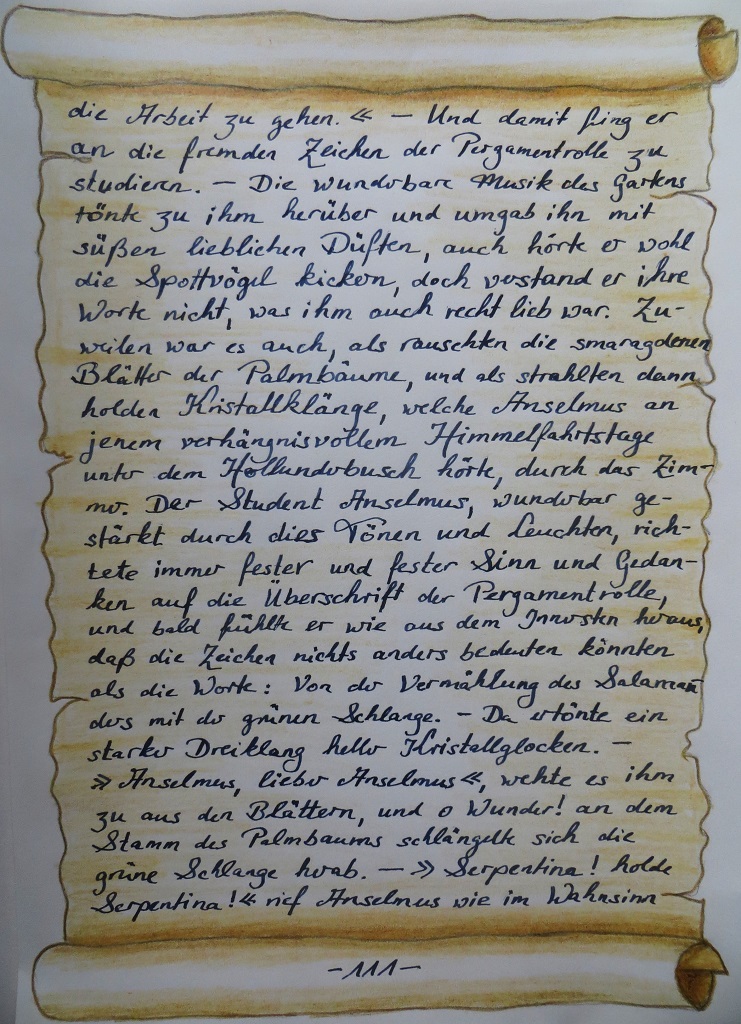 die Arbeit zu gehen.« – Und damit fing er
an die fremden Zeichen der Pergamentrolle zu
studieren. – Die wunderbare Musik des Gartens
tönte zu ihm herüber und umgab ihn mit
süßen lieblichen Düften, auch hörte er wohl
die Spottvögel kickern, doch verstand er ihre
Worte nicht, was ihm auch recht lieb war. Zu-
weilen war es auch, als rauschten die smaragdenen
Blätter der Palmbäume, und als strahlten dann
holden Kristallklänge, welche Anselmus an
jenem verhängnisvollem Himmelfahrtstage
unter dem Hollunderbusch hörte, durch das Zim-
mer. Der Student Anselmus, wunderbar ge-
stärkt durch dies Tönen und Leuchten, rich-
tete immer fester und fester Sinn und Gedan-
ken auf die Überschrift der Pergamentrolle,
und bald fühlte er wie aus dem Innersten heraus,
daß die Zeichen nichts anders bedeuten könnten
als die Worte: Von der Vermählung des Salaman
ders mit der grünen Schlange. – Da ertönte ein
starker Dreiklang heller Kristallglocken. –
»Anselmus, lieber Anselmus«, wehte es ihm
zu aus den Blättern, und o Wunder! an dem
Stamm des Palmbaums schlängelte sich die
grüne Schlange herab. – »Serpentina! holde
Serpentina!« rief Anselmus wie im Wahnsinn
-111-